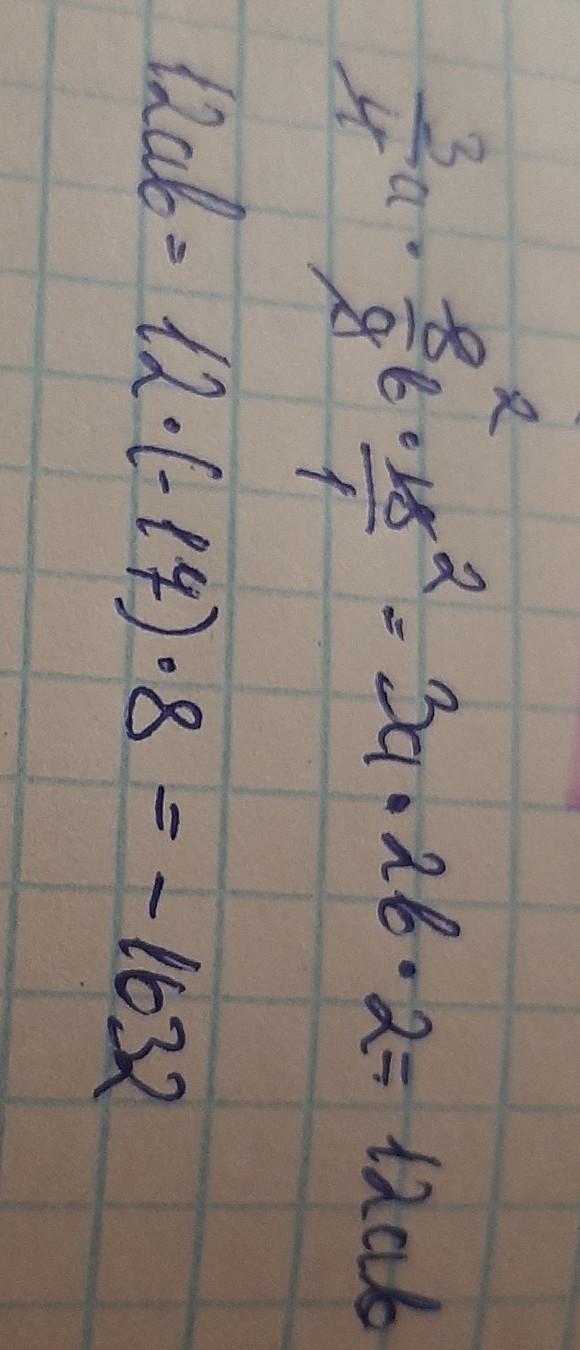 3/4 a · 8/9 b 2 · 18/1 2 = 3a · 2b · 2 = 12ab
12ab = 12 · (-17) · 8 = -1632